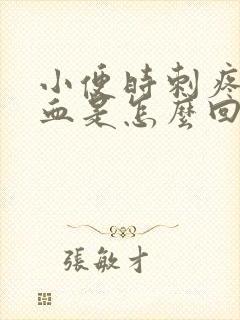 小便時刺疼
血是怎麼回
張敏才